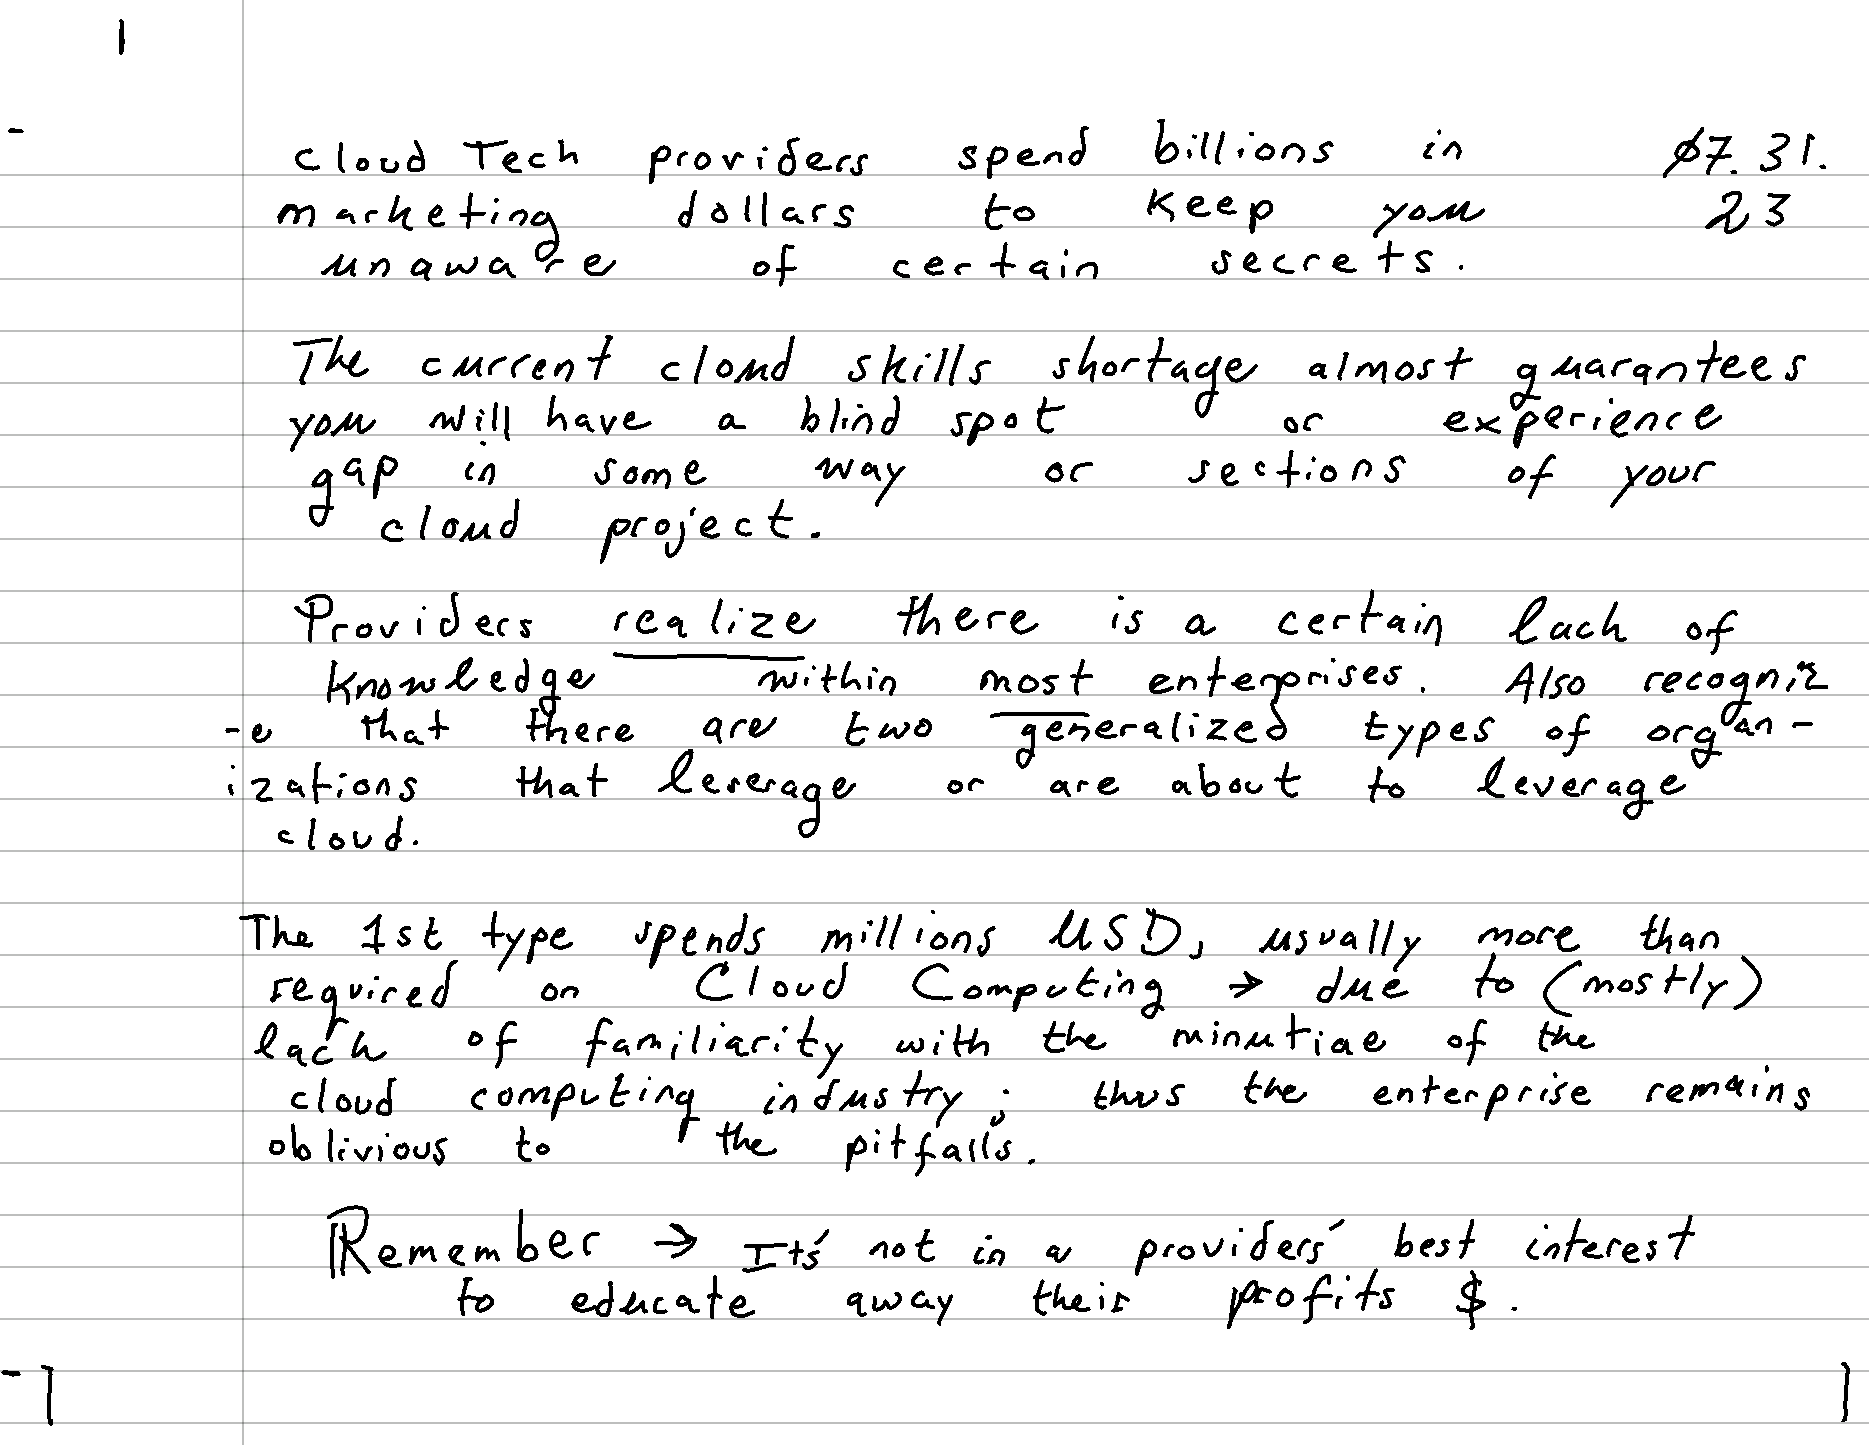 cloud Tech providers spend billions in 07.31.
marketing dollars to Keep you 23
unaware of certain secrets.
The current cloud skills shortage almost guarantees
you will have a blind spot or experience
gap in some way or sections of your
cloud project.
Providers realize there is a certain lack of
knowledge within most enterprises. Also recogniz
-e that there are two generalized types of organ-
izations that leverage or are about to leverage
cloud.
The 1st type spends millions USD, usually more than
required on Cloud Computing → due to (mostly)
lack of familiarity with the minutiae of the
cloud computing industry; thus the enterprise remains
oblivious to the pitfalls.
Remember → It's not in a providers' best interest
to educate away their profits $.